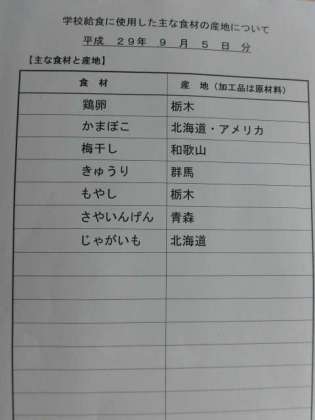 学校給食に使用した主な食材の産地について
平成 29年 9月 5日 分
【主な食材と産地】
食 材 産 地（加工品は原材料）
鶏卵 栃木
かまぼこ 北海道・アメリカ
梅干し 和歌山
きゅうり 群馬
もやし 栃木
さやいんげん 青森
じゃがいも 北海道